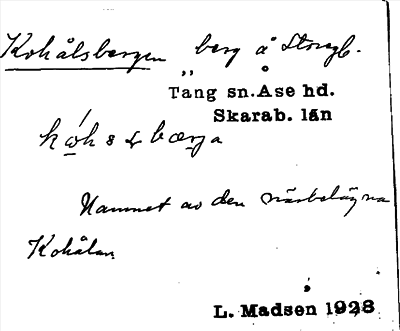 Kohålsbergen berg å Storegb.
Täng sn. Åse hd.
Skarab. län
Namnet av den närbelägna
Kohålan
L. Madsen 1928